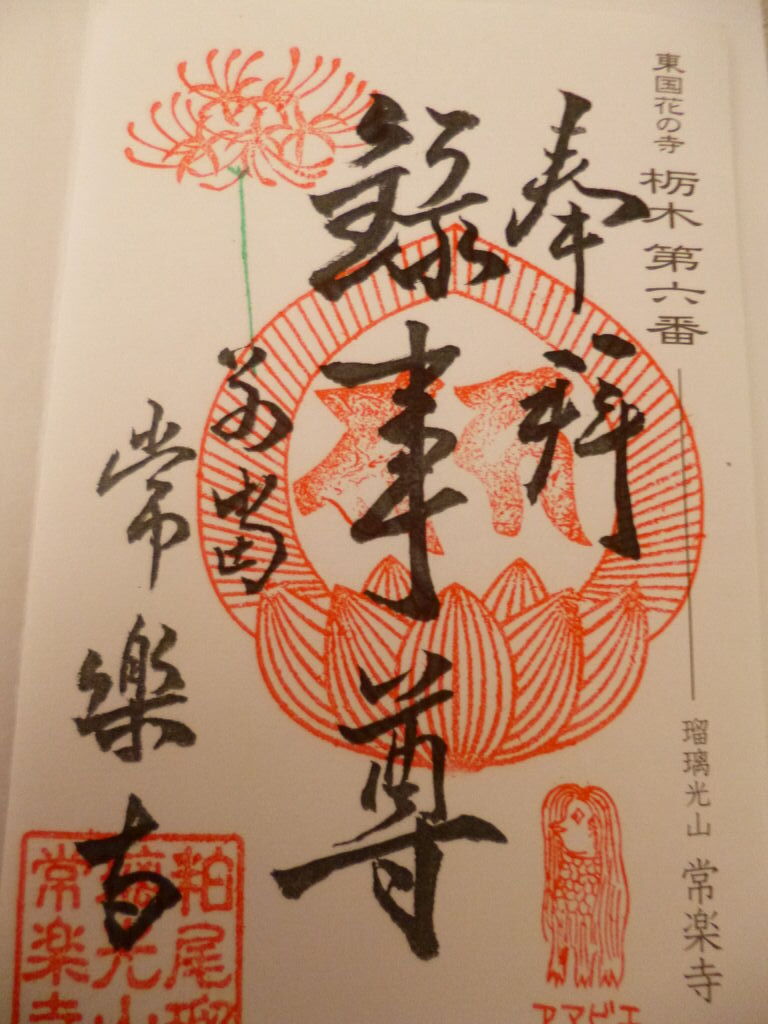 東国花の寺 栃木 第六番
瑠璃光山 常楽寺
奉拝
録事尊
常樂寺
アマビエ
粕尾瑠
璃光山
常楽寺